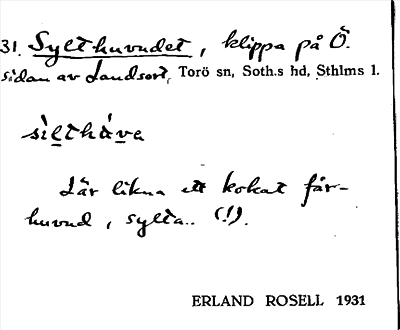 31. Sylthuvudet, klippa på Ö.
sidan av Landsort, Torö sn, Soth.s hd, Sthlms l.
sìlthá̱va
Lär likna ett kokat får-
huvud, sylta.. (!).
ERLAND ROSELL 1931